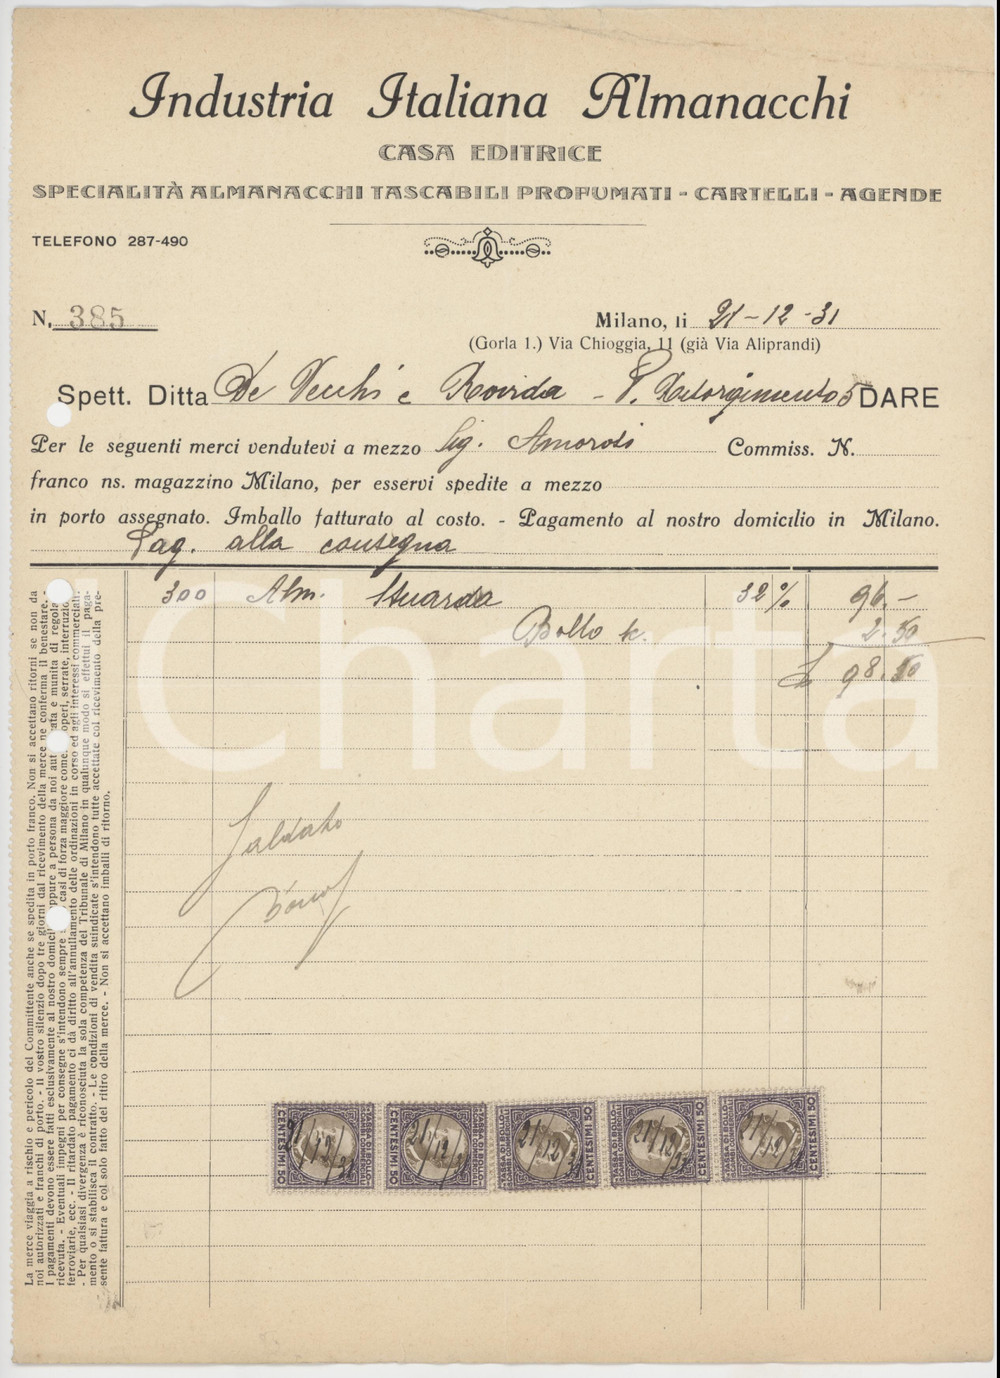 Industria Italiana Almanacchi
CASA EDITRICE
SPECIALITÀ ALMANACCHI TASCABILI PROFUMATI - CARTELLI - AGENDE
TELEFONO 287-490
N. 385
Milano, li 21-12-31
(Gorla 1.) Via Chioggia, 11 (già Via Aliprandi)
Spett. Ditta De Vecchi e Rovida - P. Risorgimento 5 DARE
Per le seguenti merci vendutevi a mezzo Sig. Amorosi Commiss. N.
franco ns. magazzino Milano, per esservi spedite a mezzo
in porto assegnato. Imballo fatturato al costo. - Pagamento al nostro domicilio in Milano.
Pag. alla consegna
300 Alm. Stuarda 32 % 96.-
Bollo 2.50
L. 98.50
Charta
Saldato
CENTESIMI 50 TASSA DI BOLLO 21/12/31
CENTESIMI 50 TASSA DI BOLLO 21/12/31
TASSA DI BOLLO CENTESIMI 50 21/12/31
TASSA DI BOLLO CENTESIMI 50 21/12/31
TASSA DI BOLLO CENTESIMI 50 21/12/31
La merce viaggia a rischio e pericolo del Committente anche se spedita in porto franco. Non si accettano ritorni se non da
noi autorizzati e franchi di porto. - Il vostro silenzio dopo tre giorni dal ricevimento della merce ne conferma il benestare. -
I pagamenti devono essere fatti esclusivamente al nostro domicil ppure a persona da noi aut ata e munita di regola
ricevuta. - Eventuali impegni per consegne s'intendono sempre casi di forza maggiore come operi, serrate, interruzio
ferroviarie, ecc. - Il ritardato pagamento ci dà diritto all'annullamento delle ordinazioni in corso ed agli interessi commerciali.
- Per qualsiasi divergenza è riconosciuta la sola competenza del Tribunale di Milano in qualunque modo si effettui il paga-
mento o si stabilisca il contratto. - Le condizioni di vendita suindicate s'intendono tutte accettate col ricevimento della pre-
sente fattura e col solo fatto del ritiro della merce. - Non si accettano imballi di ritorno.